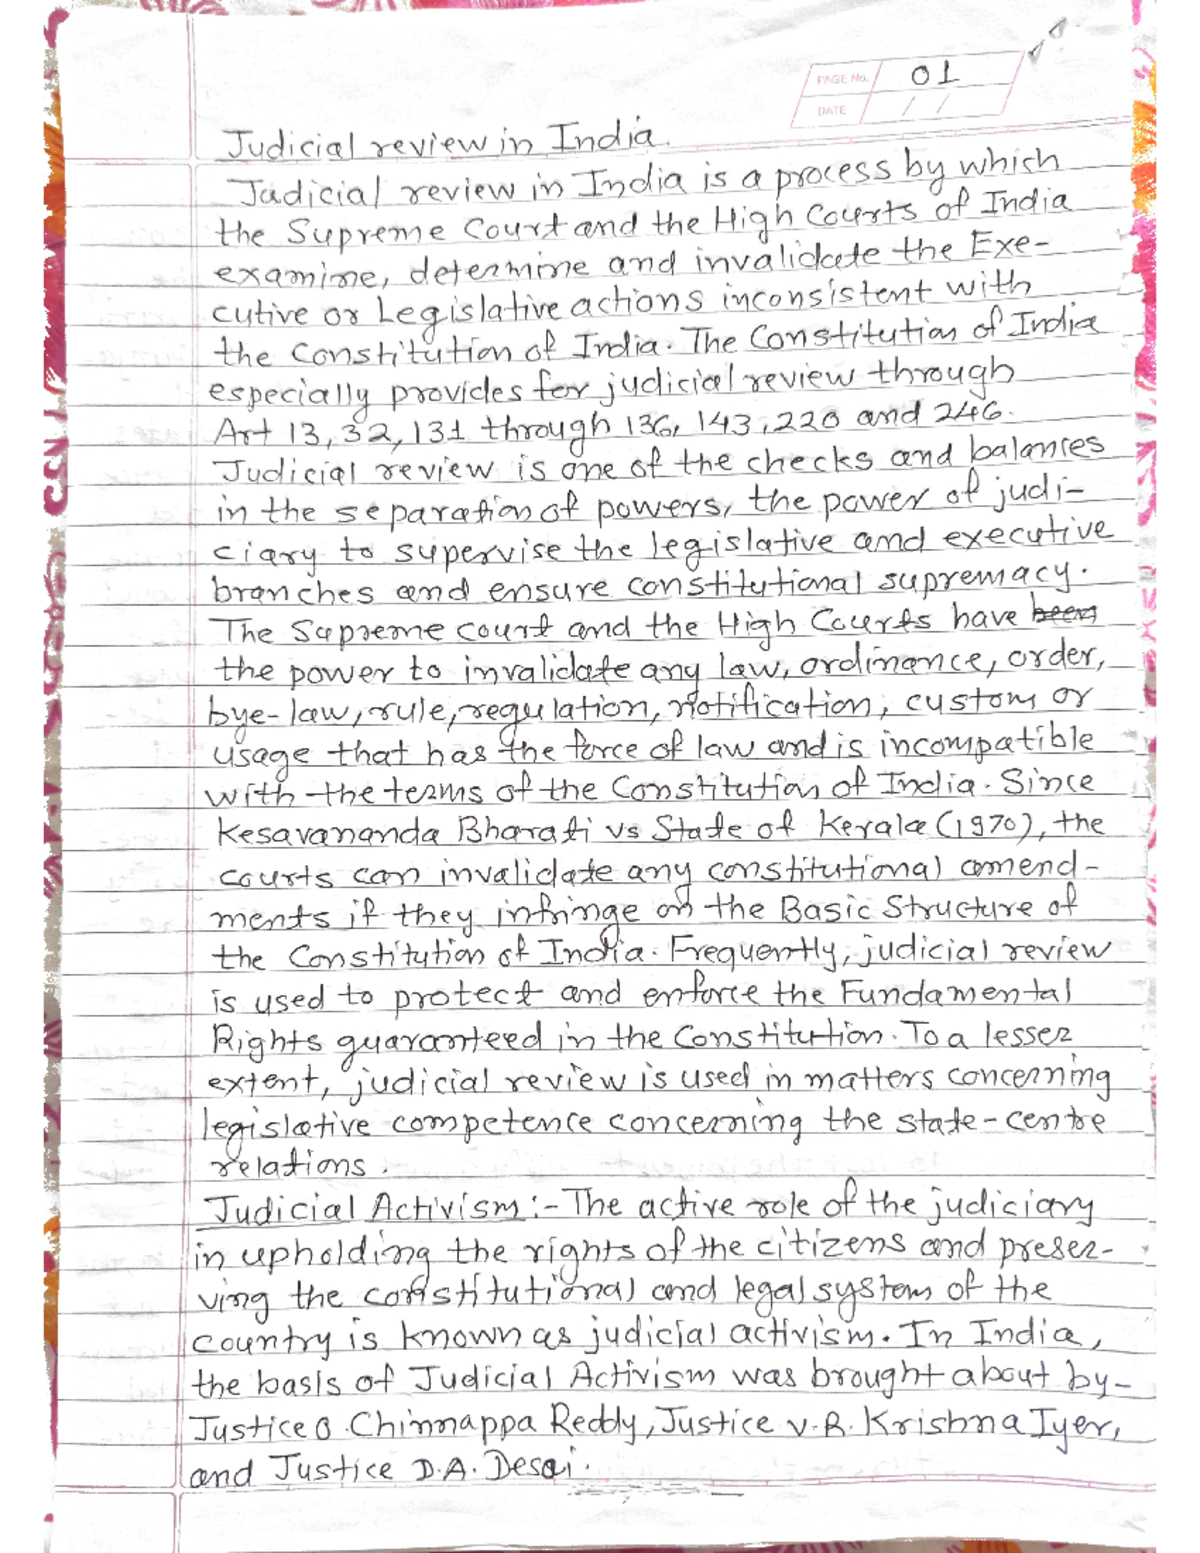 PAGE No. 01
DATE / /
Judicial review in India.
Judicial review in India is a process by which
the Supreme Court and the High Courts of India
examine, determine and invalidate the Exe-
cutive or Legislative actions inconsistent with
the Constitution of India. The Constitution of India
especially provides for judicial review through
Art 13, 32, 131 through 136, 143, 226 and 246.
Judicial review is one of the checks and balances
in the separation of powers, the power of judi-
ciary to supervise the legislative and executive
branches and ensure constitutional supremacy.
The Supreme court and the High Courts have been
the power to invalidate any law, ordinance, order,
bye-law, rule, regulation, notification, custom or
usage that has the force of law and is incompatible
with the terms of the Constitution of India. Since
Kesavananda Bharati vs State of Kerala (1970), the
courts can invalidate any constitutional amend-
ments if they infringe on the Basic Structure of
the Constitution of India. Frequently, judicial review
is used to protect and enforce the Fundamental
Rights guaranteed in the Constitution. To a lesser
extent, judicial review is used in matters concerning
legislative competence concerning the state-centre
relations.
Judicial Activism:- The active role of the judiciary
in upholding the rights of the citizens and preser-
ving the constitutional and legal system of the
country is known as judicial activism. In India,
the basis of Judicial Activism was brought about by-
Justice O. Chinnappa Reddy, Justice V.R. Krishna Iyer,
and Justice D.A. Desai.